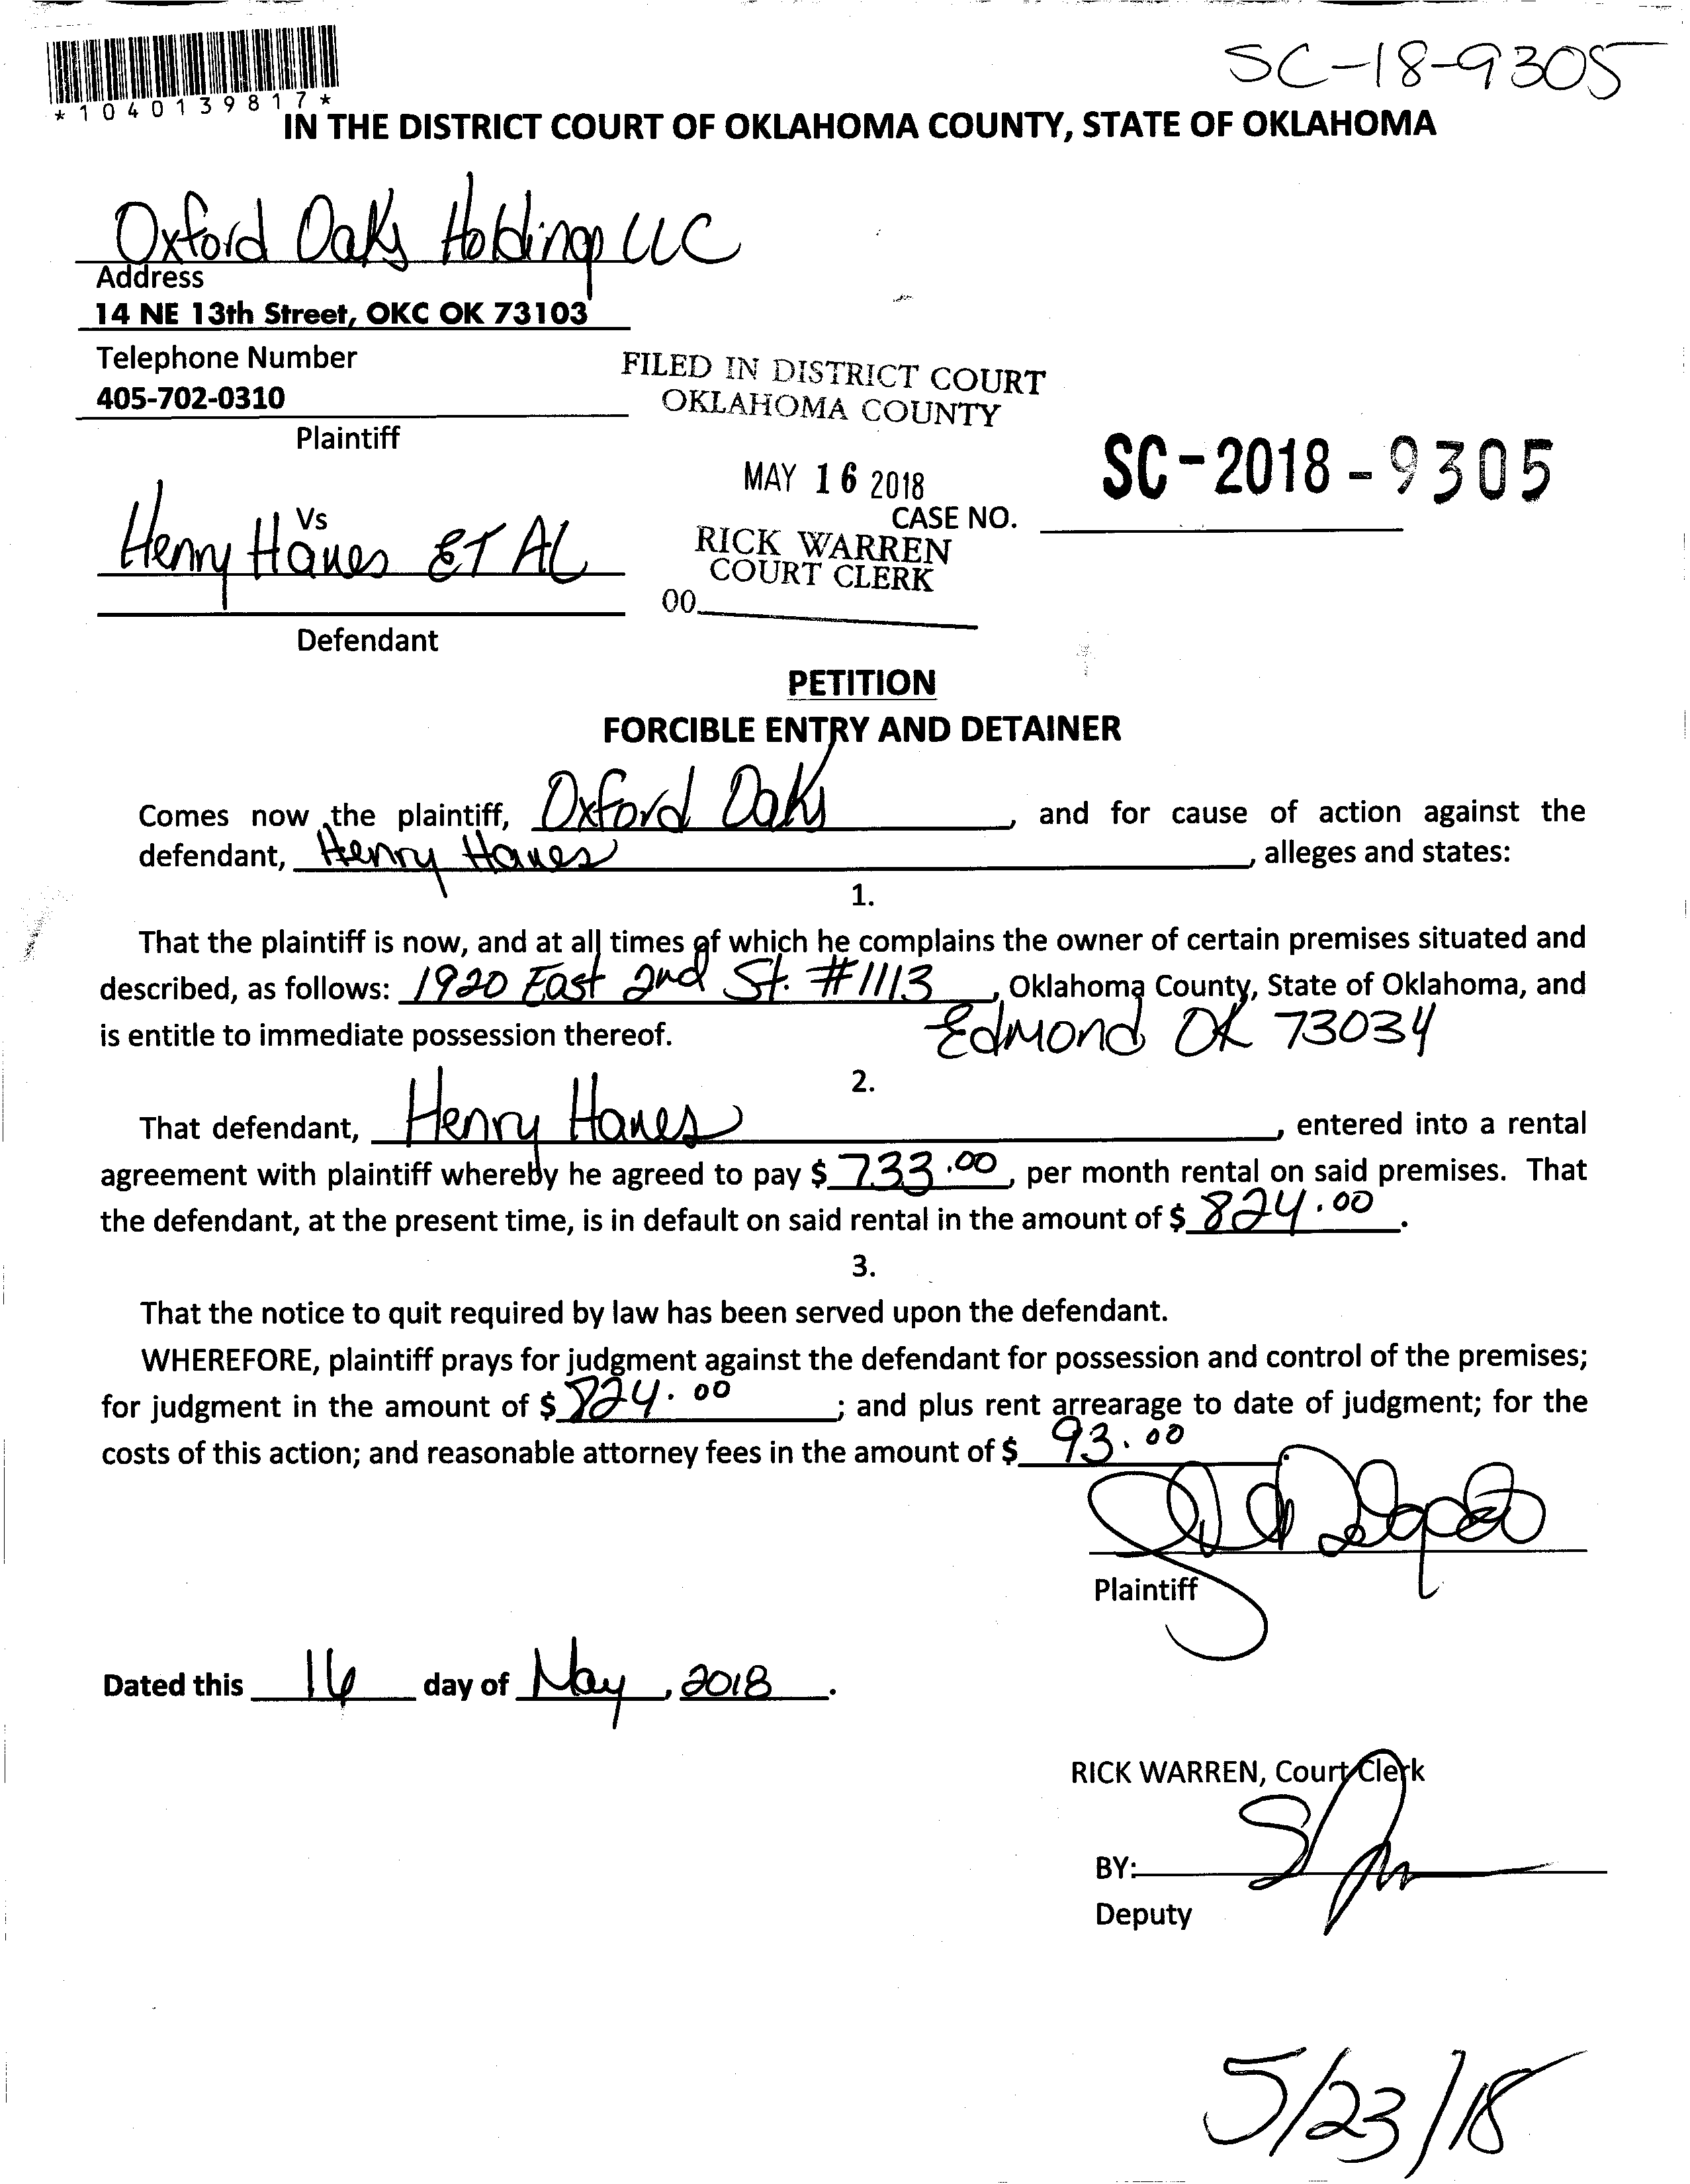 SC-18-9305
*1040139817*
IN THE DISTRICT COURT OF OKLAHOMA COUNTY, STATE OF OKLAHOMA
Oxford Oaks Holdings LLC
Address
14 NE 13th Street, OKC OK 73103
Telephone Number
405-702-0310
Plaintiff
FILED IN DISTRICT COURT
OKLAHOMA COUNTY
MAY 16 2018
SC-2018-9305
CASE NO.
RICK WARREN
COURT CLERK
00
Vs
Henry Hanes ET AL
Defendant
PETITION
FORCIBLE ENTRY AND DETAINER
Comes now the plaintiff, Oxford Oaks, and for cause of action against the
defendant, Henry Hanes, alleges and states:
1.
That the plaintiff is now, and at all times of which he complains the owner of certain premises situated and
described, as follows: 1920 East 2nd St. #1113, Oklahoma County, State of Oklahoma, and
is entitle to immediate possession thereof. Edmond OK 73034
2.
That defendant, Henry Hanes, entered into a rental
agreement with plaintiff whereby he agreed to pay $ 733.00, per month rental on said premises. That
the defendant, at the present time, is in default on said rental in the amount of $ 824.00.
3.
That the notice to quit required by law has been served upon the defendant.
WHEREFORE, plaintiff prays for judgment against the defendant for possession and control of the premises;
for judgment in the amount of $ 824.00; and plus rent arrearage to date of judgment; for the
costs of this action; and reasonable attorney fees in the amount of $ 93.00
Plaintiff
Dated this 16 day of May, 2018.
RICK WARREN, Court Clerk
BY:
Deputy
5/23/18